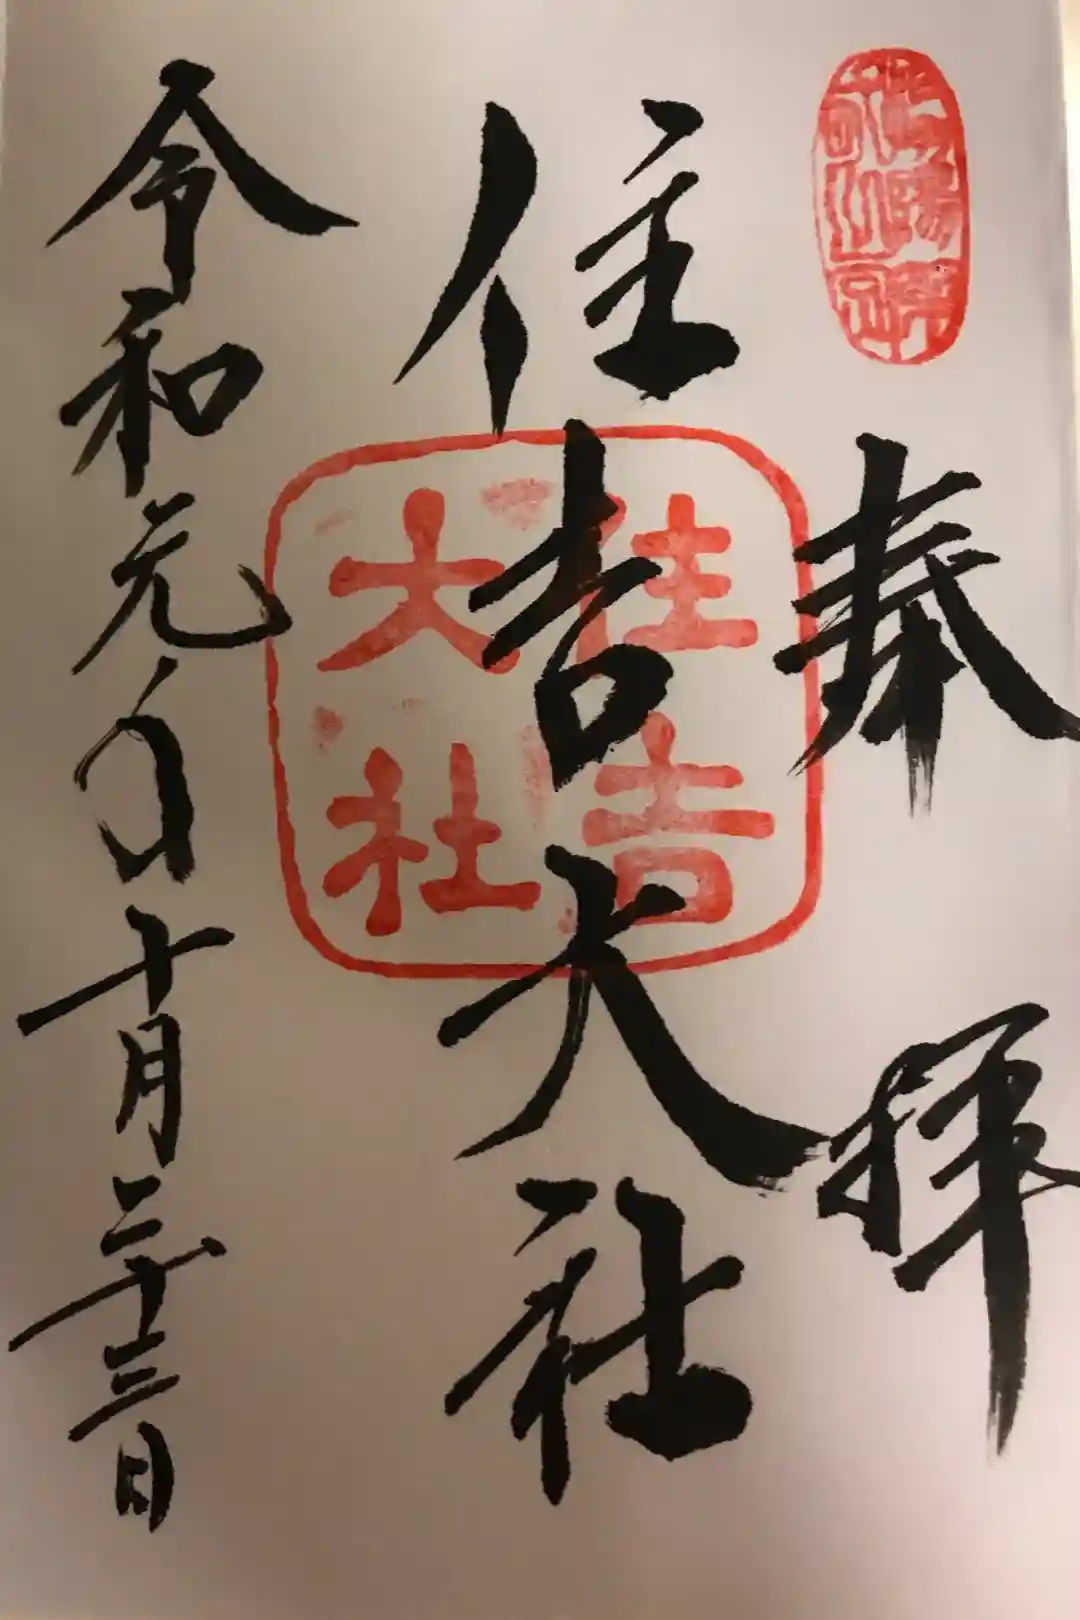 奉拝
住吉大社
住吉
大社
令和元年十月二十三日